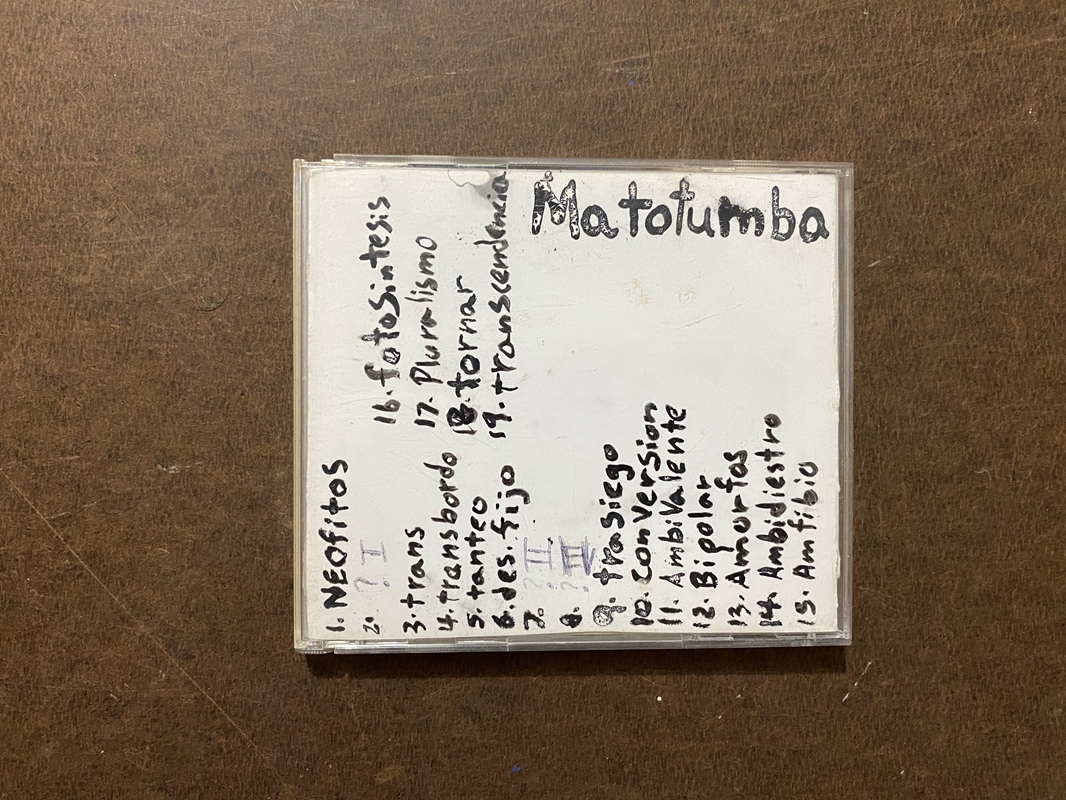 Matotumba
1. NEOfitos
2. ? I
3. trans
4. transbordo
5. tanteo
6. des.fijo
7. ? II
8. ? III
9. trasiego
10. conversion
11. AmbiValente
12. Bipolar
13. Amorfos
14. Ambidiestro
15. Amfibio
16. fotosintesis
17. Pluralismo
18. tornar
19. transcendencia